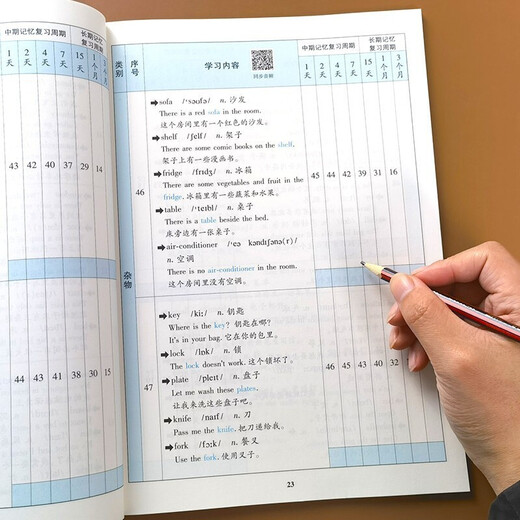 中期记忆复习周期
长期记忆
复习周期
1天
2天
4天
7天
15天
1个月
3个月
43 42 40 37 29 14
44 43 41 38 30 15
类别
序号
学习内容
同步音频
中期记忆复习周期
长期记忆
复习周期
1天
2天
4天
7天
15天
1个月
3个月
杂物
46
➡sofa /ˈsəʊfə/ n. 沙发
There is a red sofa in the room.
这个房间里有一个红色的沙发。
➡shelf /ʃelf/ n. 架子
There are some comic books on the shelf.
架子上有一些漫画书。
➡fridge /frɪdʒ/ n. 冰箱
There are some vegetables and fruit in the
fridge. 冰箱里有一些蔬菜和水果。
➡table /ˈteɪbl/ n. 桌子
There is a table beside the bed.
床旁边有一张桌子。
➡air-conditioner /ˈeə kəndɪʃənə(r)/
n. 空调
There is no air-conditioner in the room.
这个房间里没有空调。
45 44 42 39 31 16
47
➡key /kiː/ n. 钥匙
Where is the key? 钥匙在哪?
It's in your bag. 它在你的包里。
➡lock /lɒk/ n. 锁
The lock doesn't work. 这个锁坏了。
➡plate /pleɪt/ n. 盘子
Let me wash these plates.
让我来洗这些盘子吧。
➡knife /naɪf/ n. 刀
Pass me the knife. 把刀递给我。
➡fork /fɔːk/ n. 餐叉
Use the fork. 使用叉子。
46 45 43 40 32
23